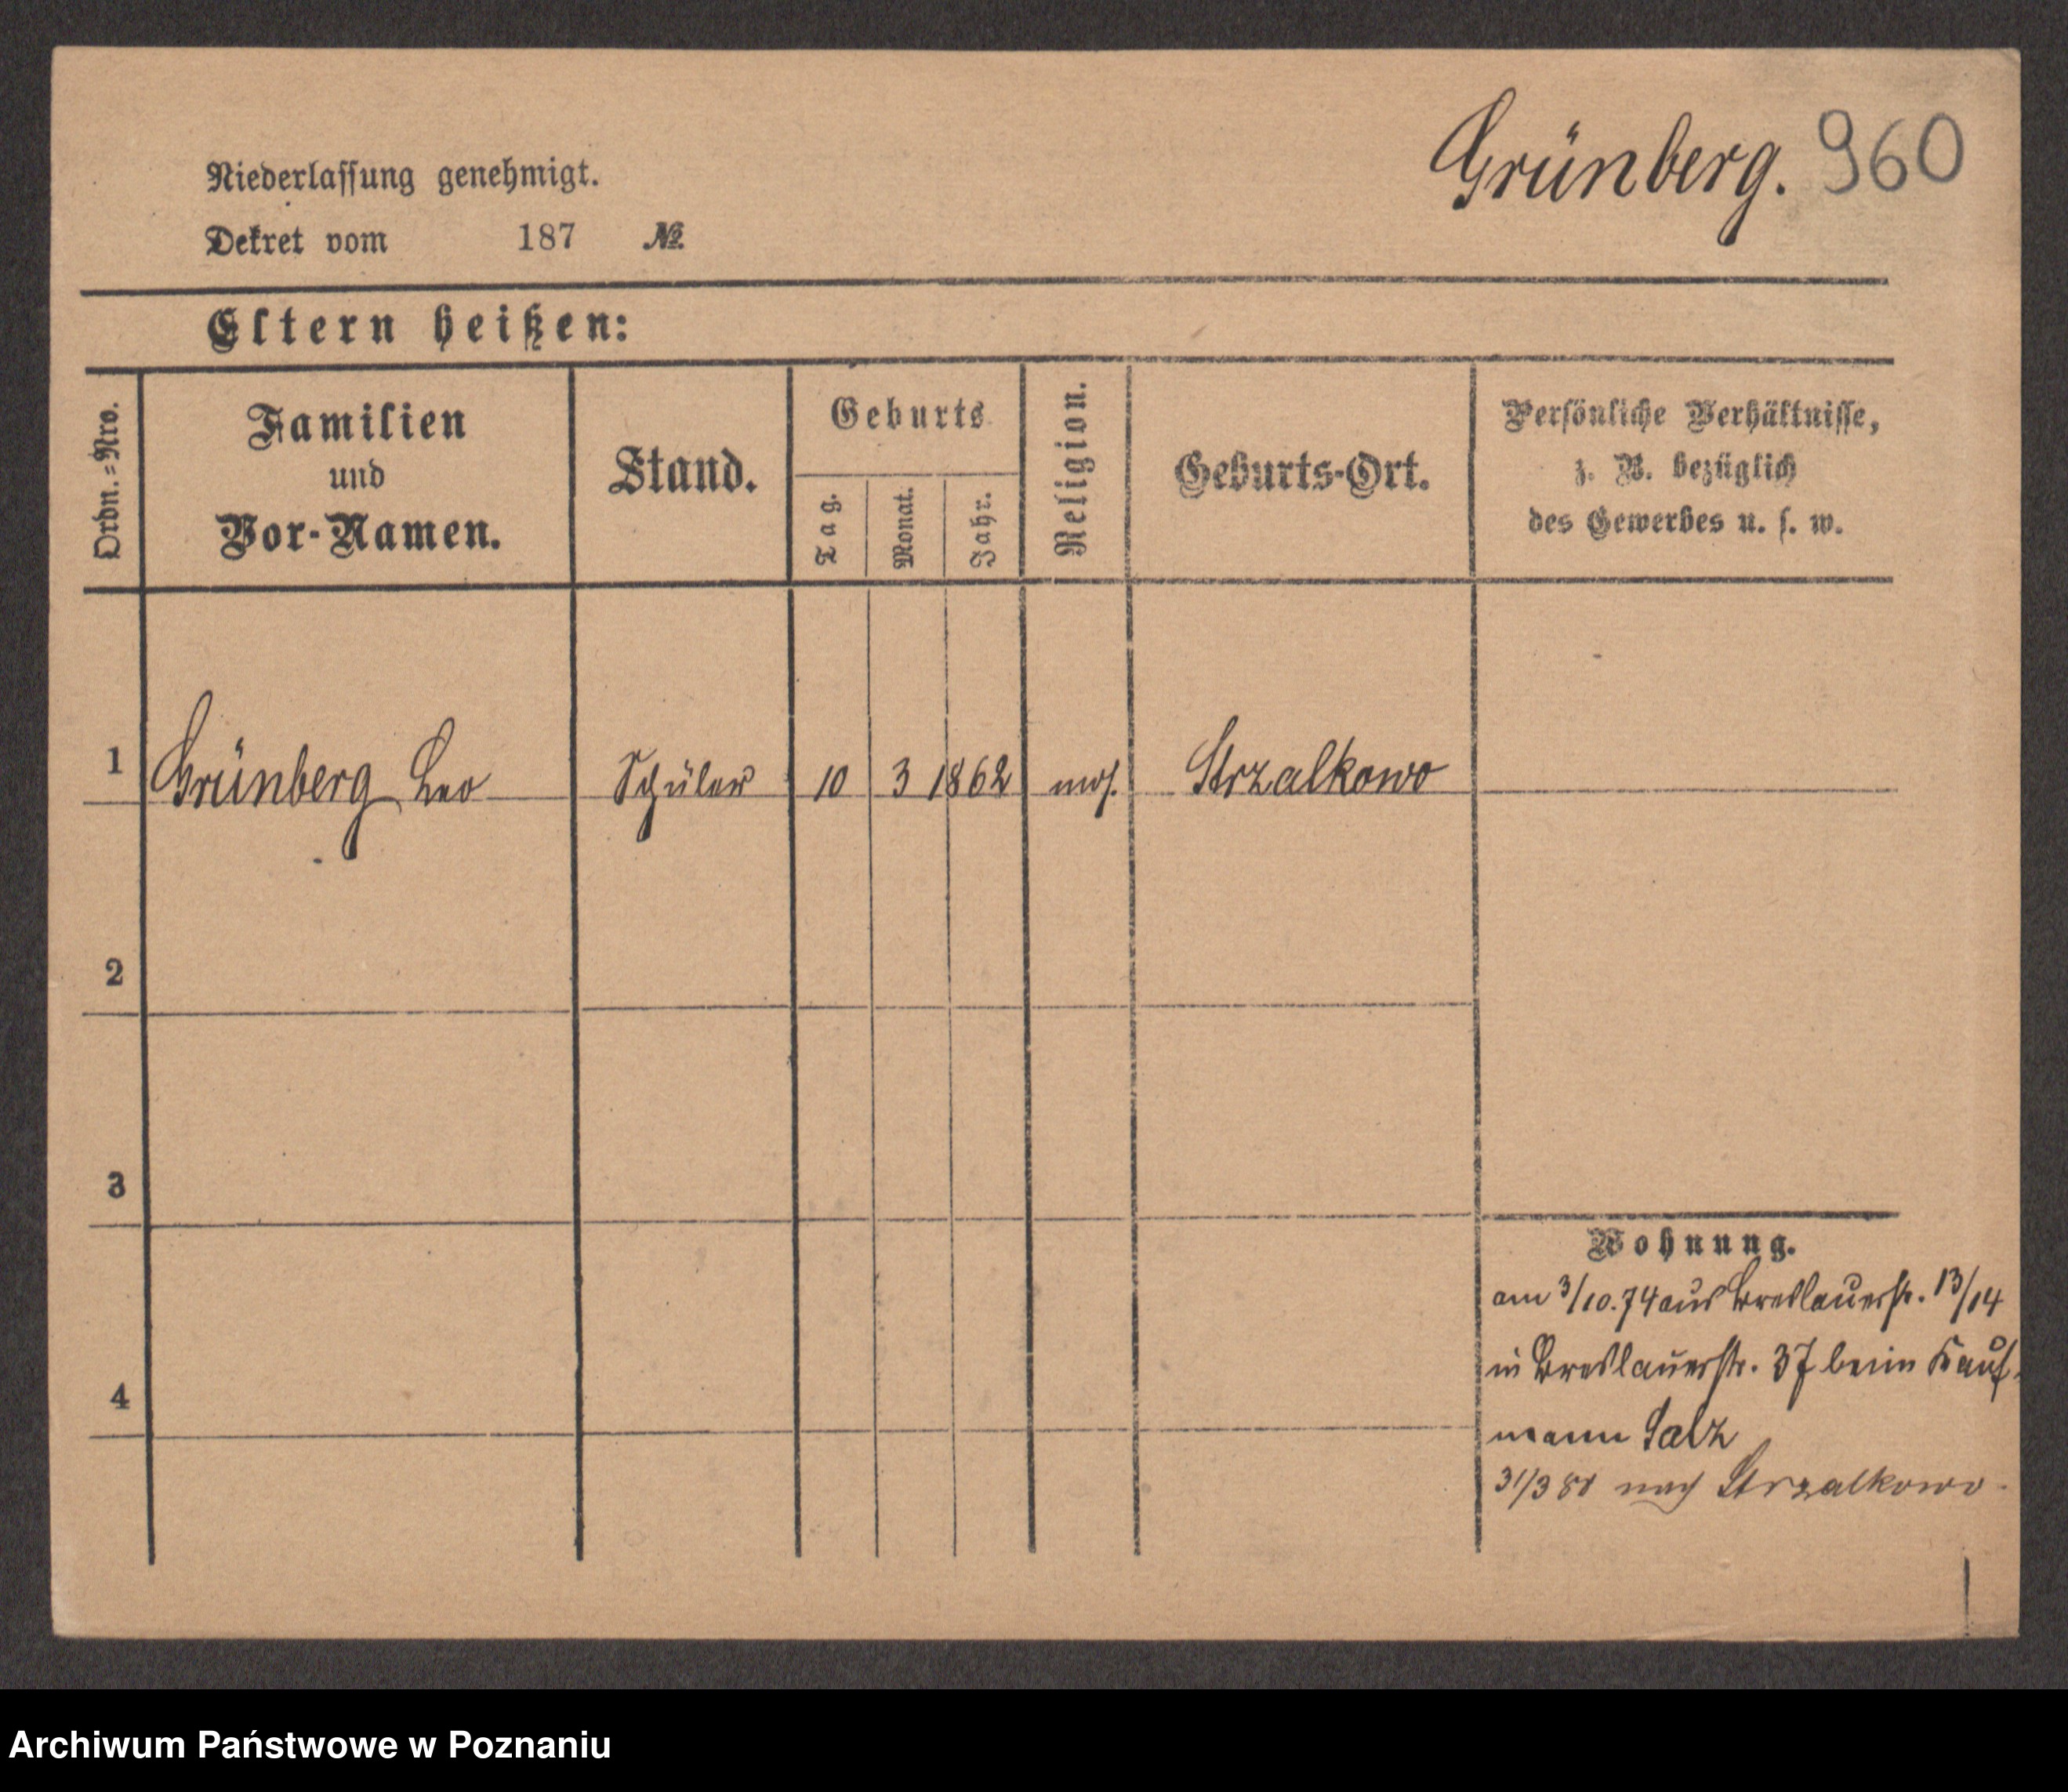 Grünberg. 960
Niederlassung genehmigt.
Dekret vom 187 №
Eltern heißen:
Ordn.=Nro.
Familien
und
Vor-Namen.
Stand.
Geburts
Tag.
Monat.
Jahr.
Religion.
Geburts-Ort.
Persönliche Verhältnisse,
z. B. bezüglich
des Gewerbes u. s. w.
1 Grünberg Leo Schüler 10 3 1862 mos. Strzalkowo
2
3
4
Wohnung.
am 3/10.74 aus Breslauerstr. 13/14
in Breslauerstr. 37 beim Kauf-
mann Salz
31/3 80 nach Strzalkowo.
Archiwum Państwowe w Poznaniu